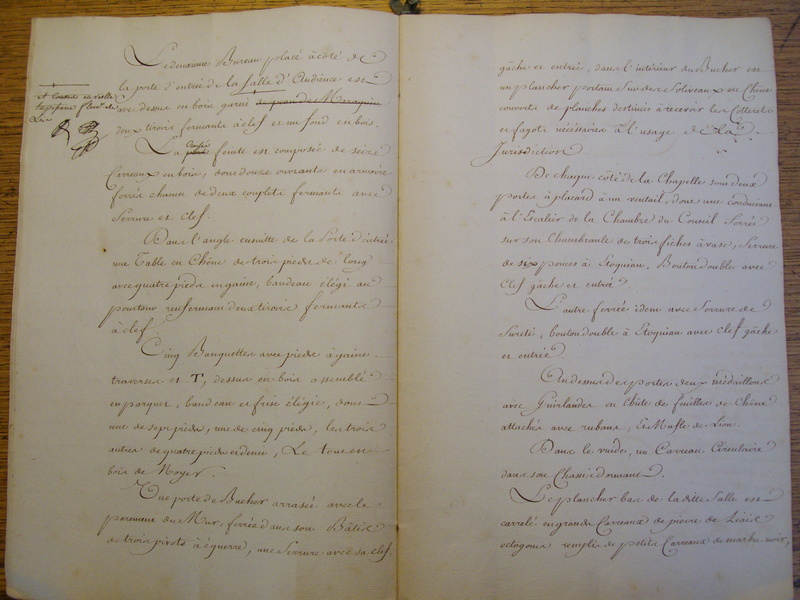 Le deuxieme Bureau placé à côté de
la porte d'entrée de la Salle d'Audience est
avec dessus en bois garni de peau de Maroquin
doux tiroirs fermants à clef et un fond en bois.
et Couvert en vielle
tapisserie fleur de
Lis
La Croisée feinte est composée de seize
Carreaux en bois, dont douze ouvrants en armoire
ferrés chacun de deux couplets fermants avec
Serrure et clef.
Dans l'angle ensuitte de la Porte d'entrée
une Table en Chêne de trois pieds de long
avec quatre pieds en gaine, bandeau élégi au
pourtour renfermant deux tiroirs fermants
à clef
Cinq Banquettes avec pieds à gaine
traverses et T, dessus en bois assemblé
en parquet, bandeau et frise élégie, dont
une de sept pieds, une de cinq pieds, les trois
autres de quatre pieds et demi, Le tout en
bois de Noyer.
Une porte de Bucher arrasée avec le
parement du Mur, ferrée dans son Bâtis
de trois pivots à équerre, une Serrure avec sa clef,
gâche et entrée, dans l'intérieur du Bucher est
un plancher portant sur des Soliveaux en Chêne
couverts de planches destinées à recevoir les Cotterets
et fagots nécessaires à l'usage de La
Jurisdiction
De chaque côté de la Chapelle sont deux
portes à placard à un ventail, dont une conduisant
à l'Escalier de la Chambre du Conseil ferrée
sur son Chambranle de trois fiches à vase, Serrure
de six pouces à Etoquiau, Bouton double avec
clef gâche et entrée
L'autre ferrée idem avec Serrure de
Sureté, bouton double à Etoquiau avec clef gâche
et entrée
Au dessus des portes deux médaillons
avec Guirlandes en chûte de feuilles de Chêne
attachés avec rubans, et Mufle de Lion
Dans le vuide, un Carreau Circulaire
dans son Chassis dormant.
Le plancher bas de la ditte Salle est
carrelé en grands Carreaux de pierre de Liais
octogones remplis de petits Carreaux de marbre noir,